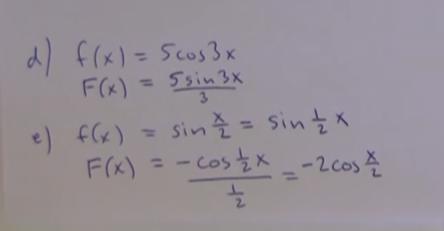 d) f(x) = 5cos3x
F(x) = 5sin3x/3
e) f(x) = sin x/2 = sin 1/2 x
F(x) = -cos 1/2 x / 1/2 = -2cos x/2